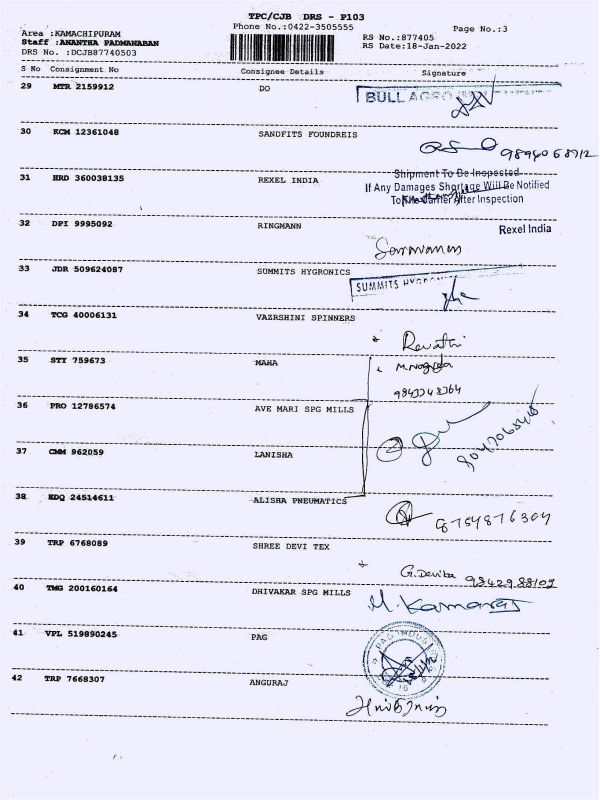 TPC/CJB DRS - P103
Phone No.:0422-3505555
Page No.:3
Area :KAMACHIPURAM
Staff :ANANTHA PADMANABAN
DRS No. :DCJB87740503
RS No.:877405
RS Date:18-Jan-2022
S No Consignment No Consignee Details Signature
29 MTR 2159912 DO
BULL AGRO
30 KCM 12361048 SANDFITS FOUNDREIS
31 HRD 360038135 REXEL INDIA
Shipment To Be Inspected
If Any Damages Shortage Will Be Notified
To The Carrier After Inspection
Rexel India
32 DPI 9995092 RINGMANN
Saravanan
33 JDR 509624087 SUMMITS HYGRONICS
SUMMITS HYGRONICS
34 TCG 40006131 VAZRSHINI SPINNERS
Revathi
35 STY 759673 MAHA
36 PRO 12786574 AVE MARI SPG MILLS
37 CMM 962059 LANISHA
38 EDQ 24514611 ALISHA PNEUMATICS
8754876304
39 TRP 6768089 SHREE DEVI TEX
G.Deviba
40 TMG 200160164 DHIVAKAR SPG MILLS
M.Kamaraj
41 VPL 519890245 PAG
42 TRP 7668307 ANGURAJ